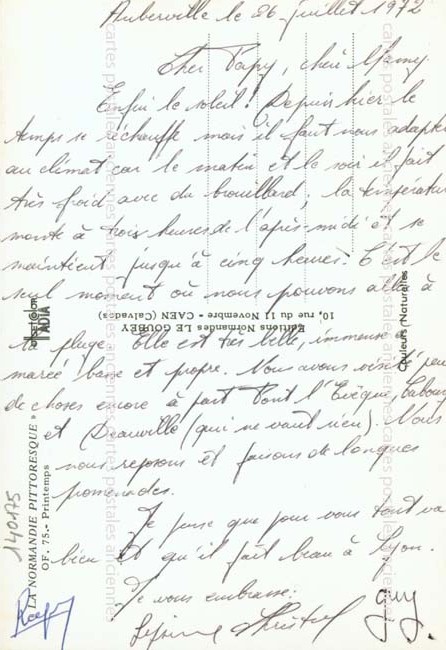 Auberville le 26 juillet 1972
Cher Papy, chère Mamy
Enfin le soleil! Depuis hier le
temps se réchauffe mais il faut nous adapter
au climat car le matin et le soir il fait
très froid avec du brouillard; la température
monte à trois heures de l'après-midi et se
maintient jusqu'à cinq heures. C'est le
seul moment où nous pouvons aller à
la plage. Elle est très belle, immense à
marée basse et propre. Nous avons visité peu
de choses encore à part Pont l'Evêque, Cabourg
et Deauville (qui ne vaut rien). Nous
nous reposons et faisons de longues
promenades.
Je pense que pour vous tout va
bien et qu'il fait beau à Lyon.
Je vous embrasse.
Guy
"LA NORMANDIE PITTORESQUE"
OF. 75.- Printemps
140175
Editions Normandes LE GOUBEY
10, rue du 11 Novembre - CAEN (Calvados)
Couleurs Naturelles
cartes postales anciennes